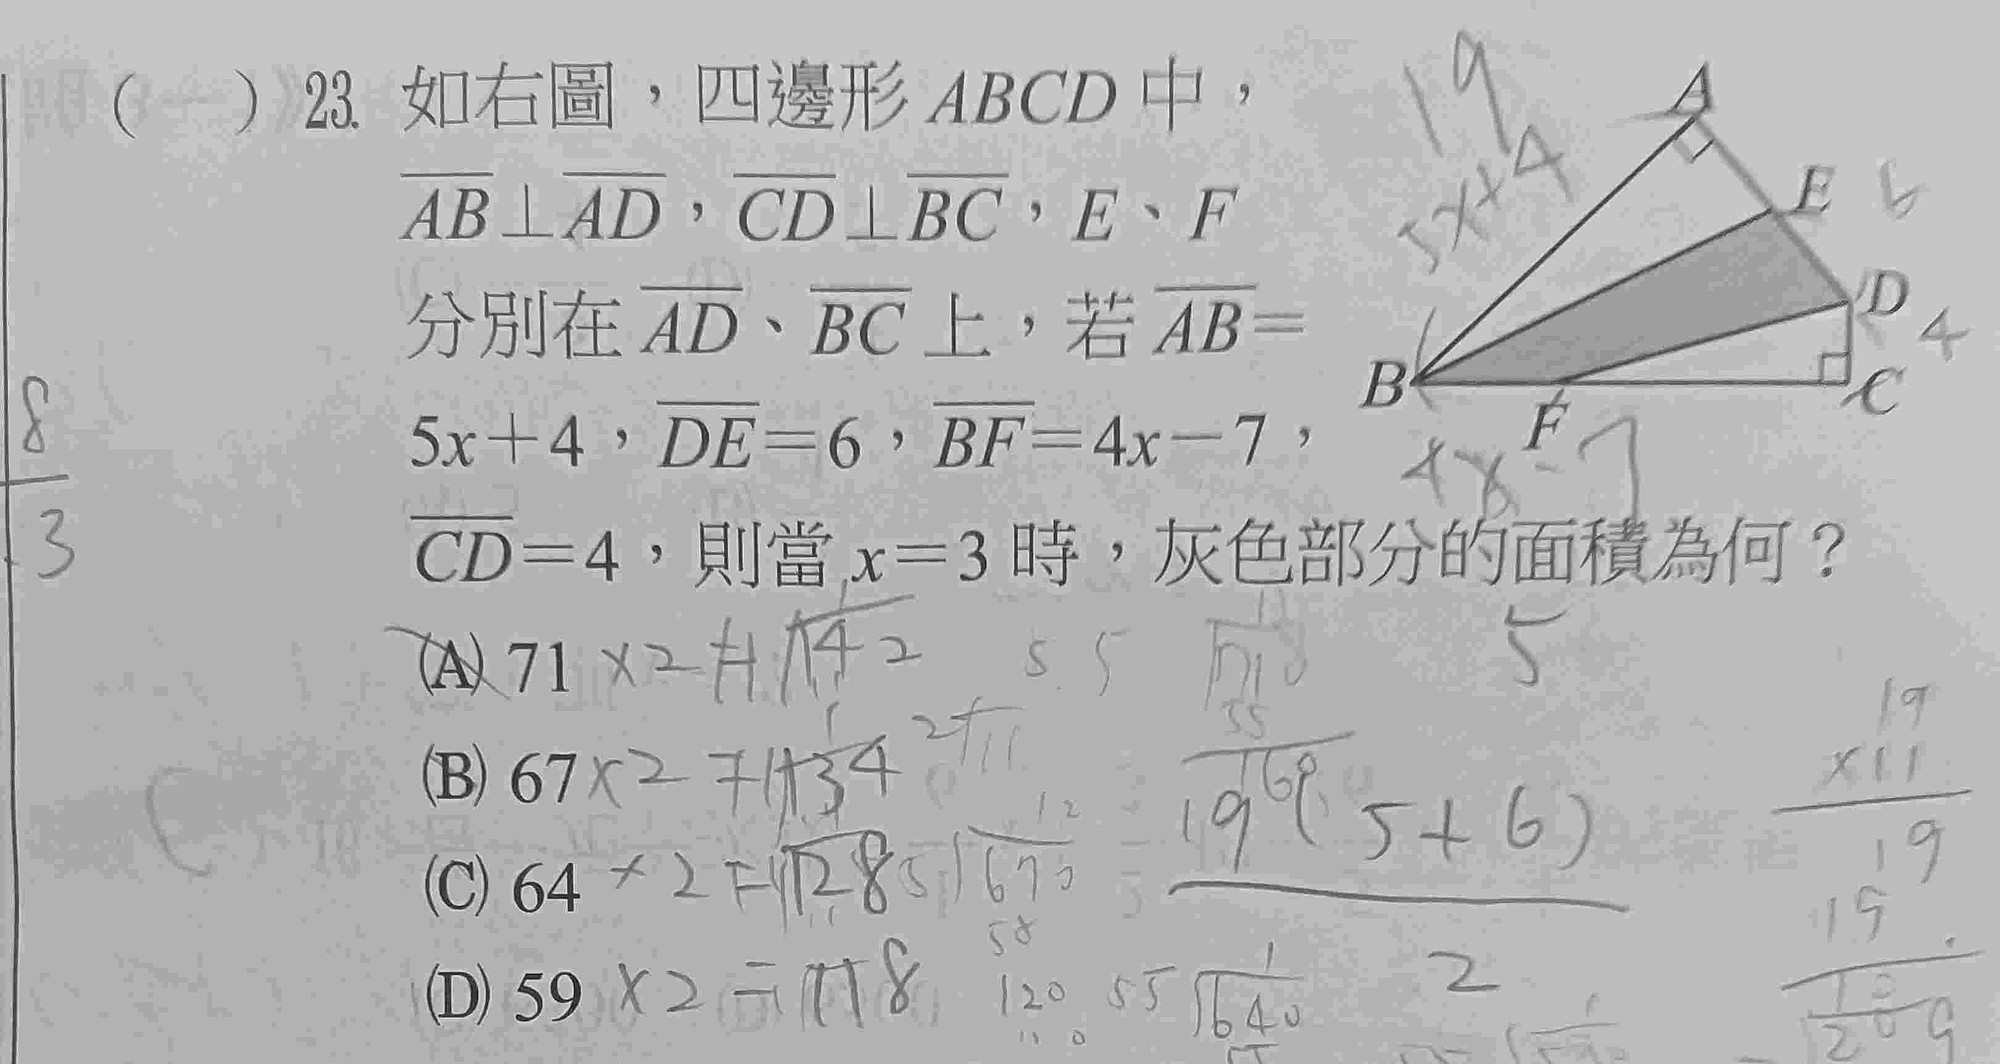 (一) 23. 如右圖，四邊形 ABCD 中，
AB⊥AD，CD⊥BC，E、F
分別在 AD、BC 上，若 AB=
5x+4，DE=6，BF=4x-7，
CD=4，則當 x=3 時，灰色部分的面積為何？
(A) 71 ×2=142
(B) 67×2=134
(C) 64×2=128
(D) 59×2=118
A
E 6
D 4
B
F
C
19
5x+4
4x-7
8
3
5
5.5
19(5+6)
2
12
5 670
58
120
55 640
1
19
×11
19
19
209